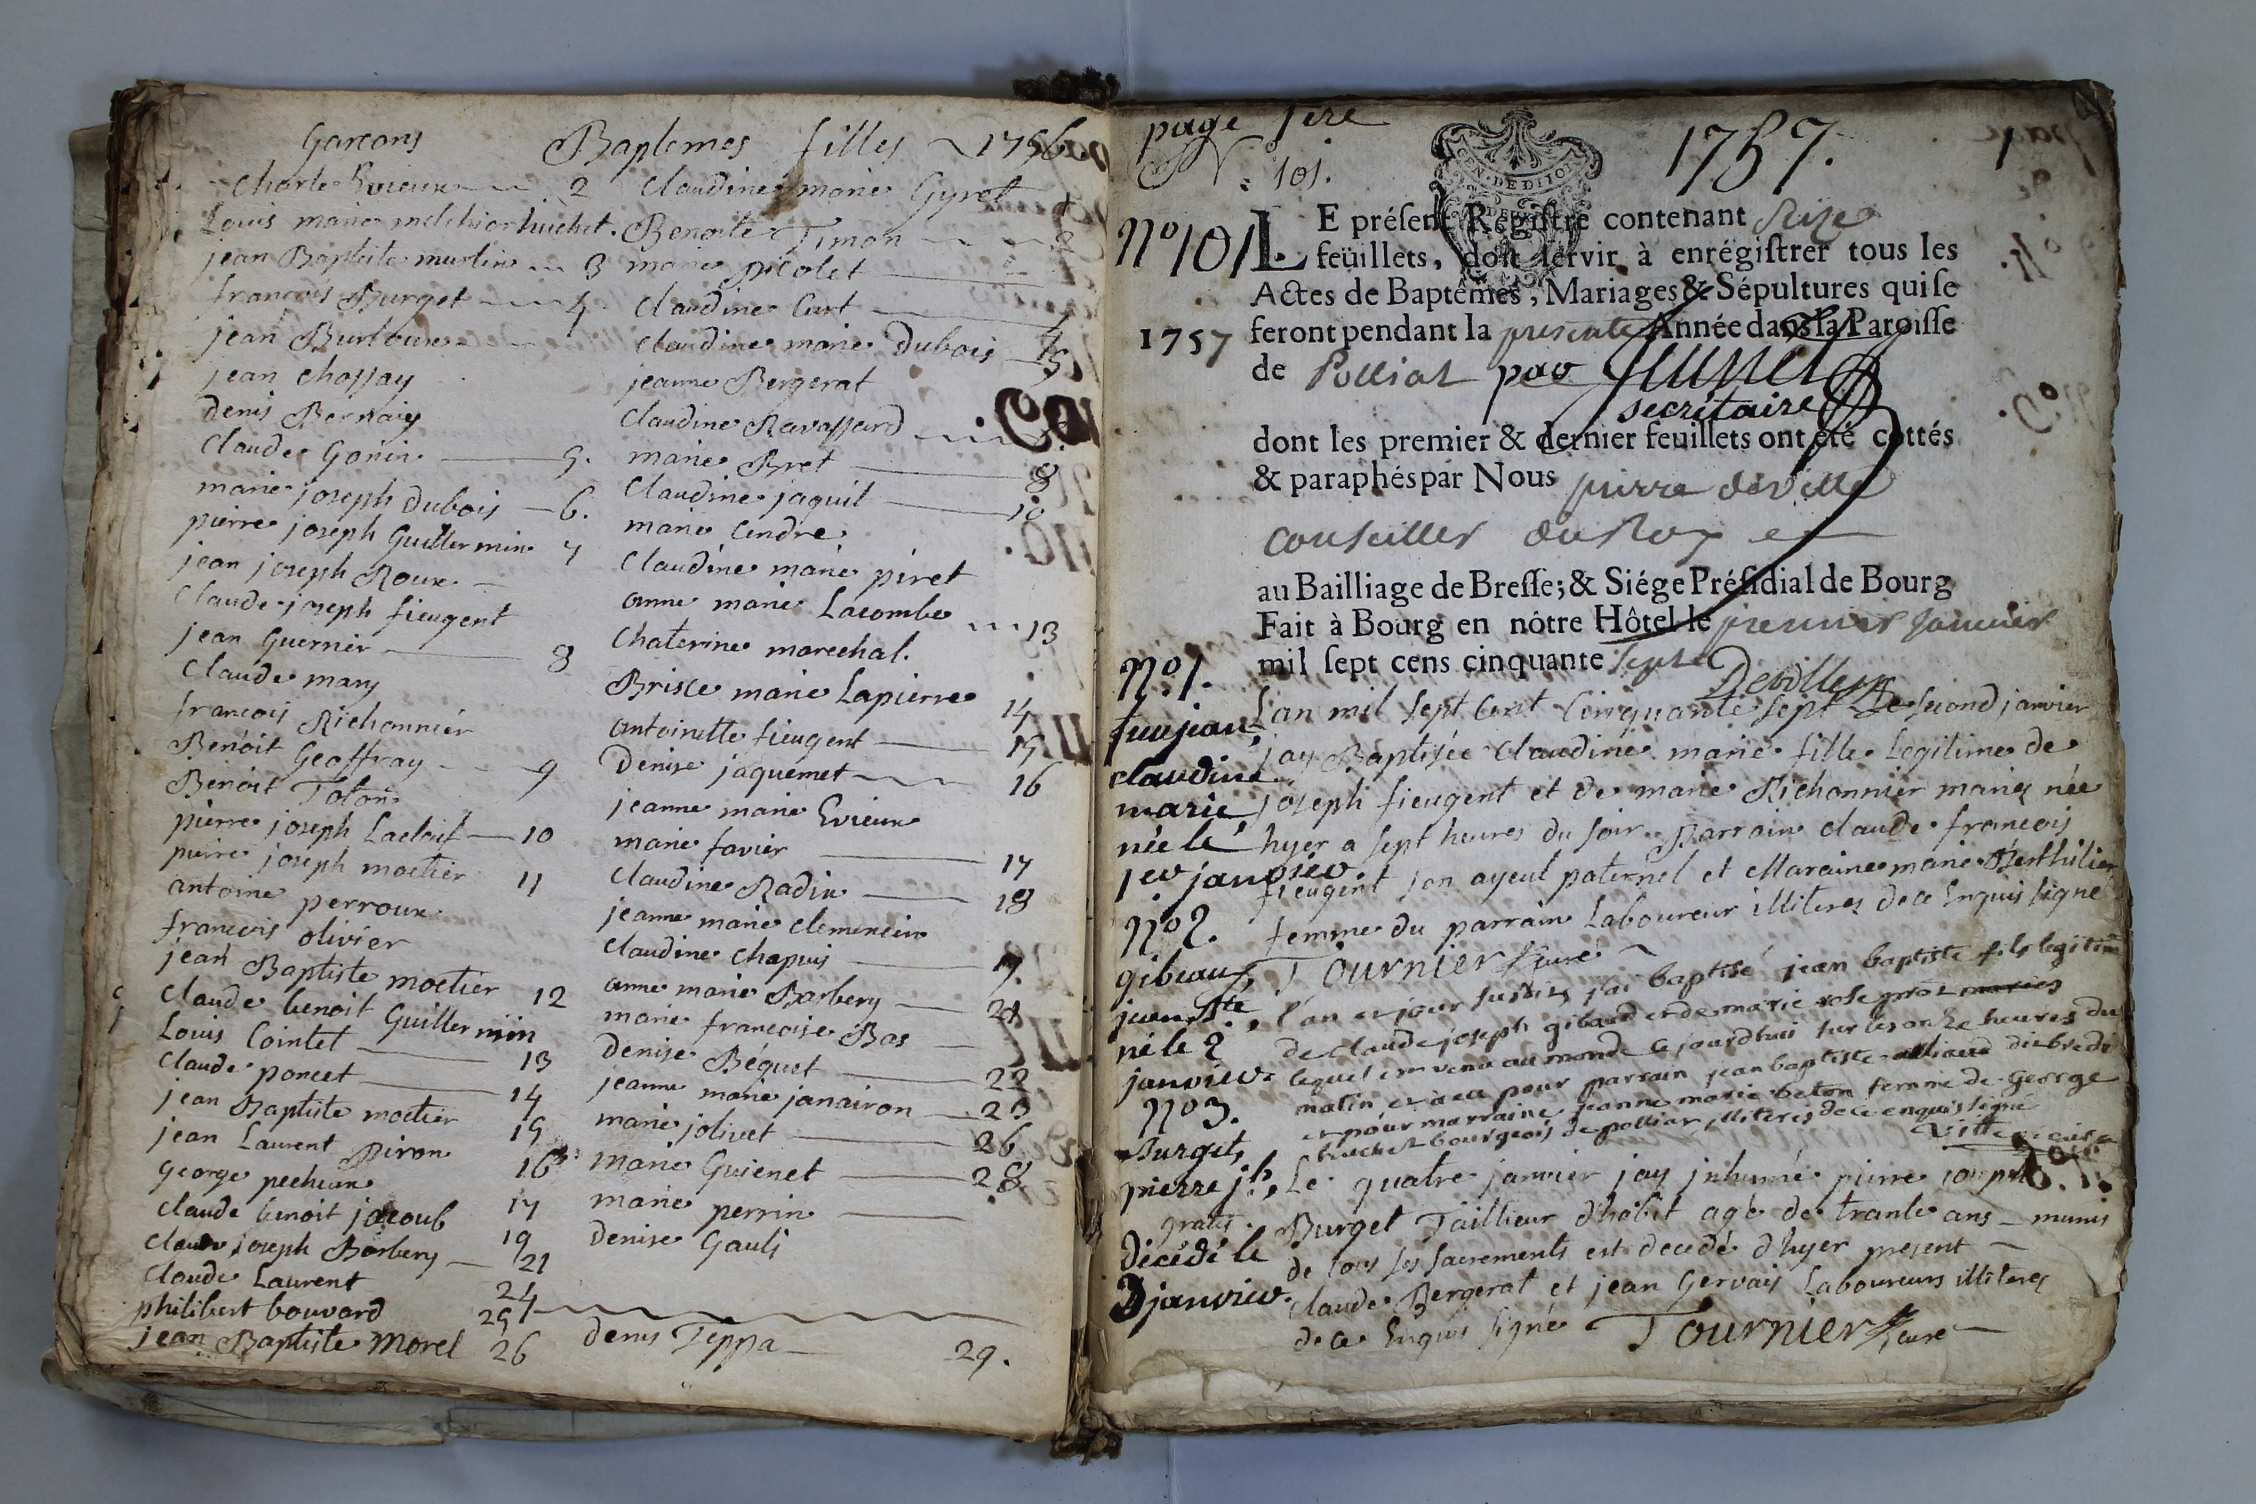 Garcons Baptemes filles 1756
Charle Evieux 2
Louis marie melchior huchet.
jean Baptiste murlin 3
francois Burget 4
jean Burtoux
jean Chossay
denis Bernaig
Claude Gonin 5.
marie joseph dubois 6.
pierre joseph Guillermin 7
jean joseph Roux
Claude joseph fieugent
jean Guernier 8
Claude mary
francois Richonnier
Benoit Geoffray 9
Benoit Toton
pierre joseph Laclail 10
pierre joseph moetier 11
antoine perroux
francois olivier
jean Baptiste moetier 12
Claude benoit Guillermin
Louis Cointet 13
Claude poncet 14
jean Baptiste moetier 15
jean Laurent Piron 16
George pecheux 17
Claude benoit jacoub 19
Claude joseph Borbery 21
Claude Laurent 24
philibert bouvard 25
jean Baptiste Morel 26
Claudine marie Gyret
Benoite Timon
marie picolet
Claudine Curt
Claudine marie dubois
jeanne Bergerat
Claudine Ravassard
marie Bret 8
Claudine jaquil 10
marie Cendre
Claudine marie piret
anne marie Lacombe 13
Chaterine marechal.
Brisce marie Lapierre 14
antoinette fieugent 15
Denise jaquemet 16
jeanne marie Evieux
marie favier 17
Claudine Radix 18
jeanne marie Clemencin
Claudine Chapuis
anne marie Borbery
marie francoise Bos
Denise Béquet 22
jeanne marie janairon 23
marie jolivet 26
marie Guienet 28
marie perrin
denise Gauli
denys Teppa 29.
page 1ere 1757. 1
N: 101.
N°101 LE présent Registre contenant seize
feüillets, doit servir à enrégistrer tous les
Actes de Baptêmes, Mariages & Sépultures qui se
1757 feront pendant la presente Année dans la Paroisse
de Polliat par
secrétaire
dont les premier & dernier feuillets ont été cottés
& paraphés par Nous pierre deville
conseiller du Roy
au Bailliage de Bresse; & Siége Présidial de Bourg
Fait à Bourg en nôtre Hôtel le premier Janvier
mil sept cens cinquante sept
N°1.
claudine
marie
née le
1er janvier
L'an mil sept Cent Cinquante sept Le second janvier
jay Baptisée Claudine marie fille Legitime de
joseph fieugent et de marie Richonnier mariez née
hyer a sept heures du soir Parrain Claude francois
fieugent son ayeul paternel et Maraine marie Berthilier
femme du parrain Laboureur illiterez de ce Enquis signé
Tournier Curé
N°2.
gibeau,
jean Bte
né le 2
janvier.
l'an et jour susdits j'ai baptisé jean baptiste fils legitime
de claude joseph gibaud et de marie rose prost mariés
lequel est venu au monde ce jourdhui sur les onze heures du
matin et a eu pour parrain jean baptiste
et pour marraine jeanne marie beton femme de George
bourgeois de polliat, illiterés de ce enquis signé
N°3.
Burget,
pierre jh,
gratis.
décédé le
3 janvier.
Le quatre janvier jay inhumé pierre joseph
Burget Taillieur d'habit agé de trante ans munis
de tous ses sacrements est decedé d'hyer present
Claude Bergerat et jean Gervais Laboureurs illiterez
de ce Enquis signé Tournier Curé